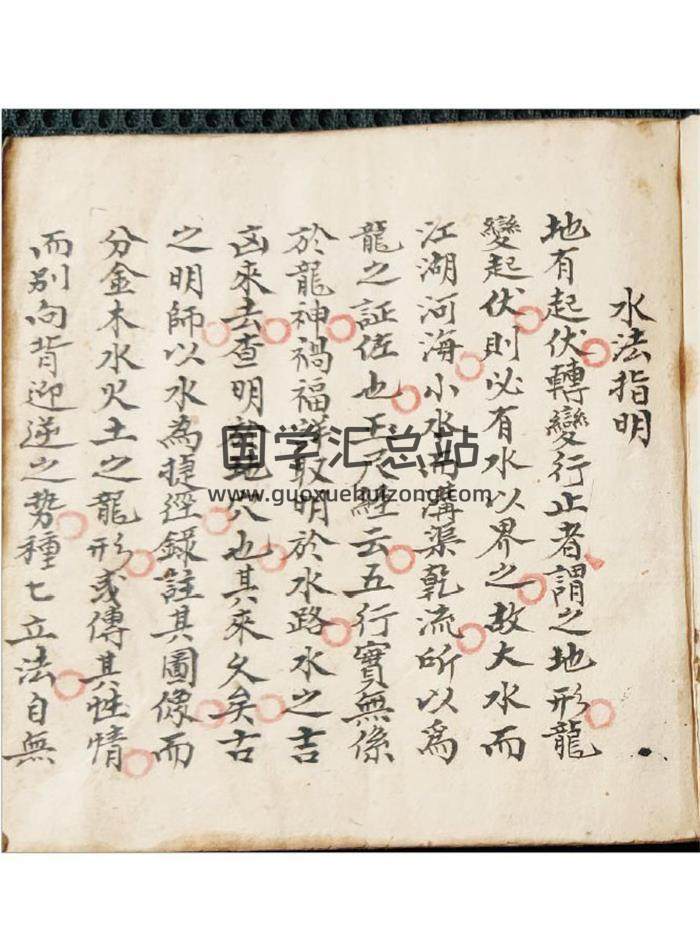 水法指明
地有起伏轉變行止者謂之地形龍
變起伏則必有水以界之故大水而
江湖河海小水溝渠乾流所以為
龍之証佐也玉尺經云五行實無係
於龍神禍福取明於水路水之吉
凶來去查明地穴也其來久矣古
之明師以水為捷徑錄註其圖像而
分金木水火土之龍形或傳其性情
而别向背迎逆之势種七立法自無
国学汇总站
www.guoxuehuizong.com